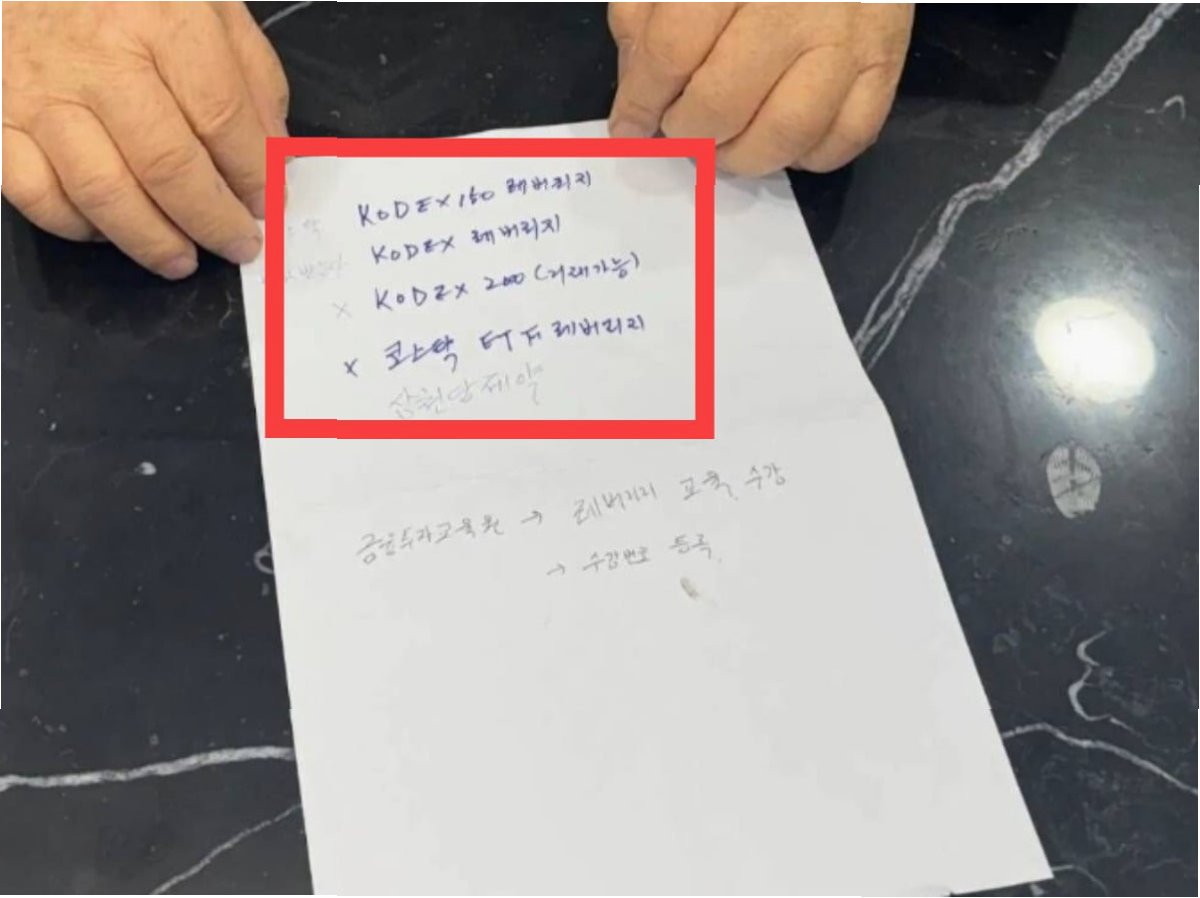 KODEX 150 레버리지
KODEX 레버리지
X KODEX 200 (거래가능)
X 코스닥 ETF 레버리지
삼천당제약
금융투자교육원 → 레버리지 교육 수강
→ 수강번호 등록.